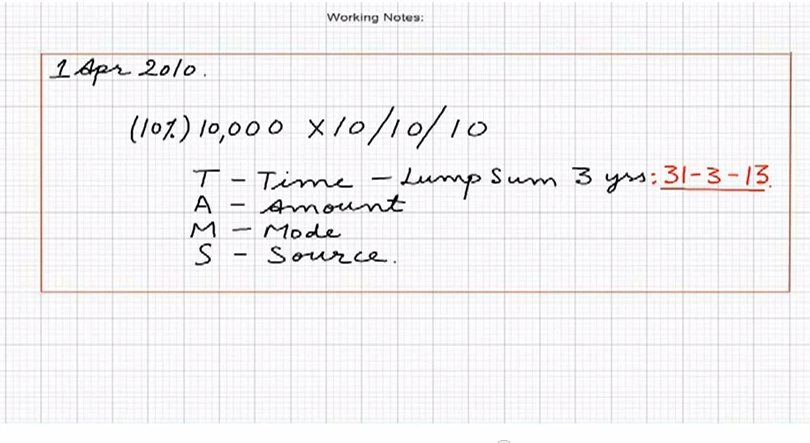 Working Notes:
1 Apr 2010.
(10%) 10,000 x 10/10/10
T - Time - Lump Sum 3 yrs: 31-3-13.
A - Amount
M - Mode
S - Source.